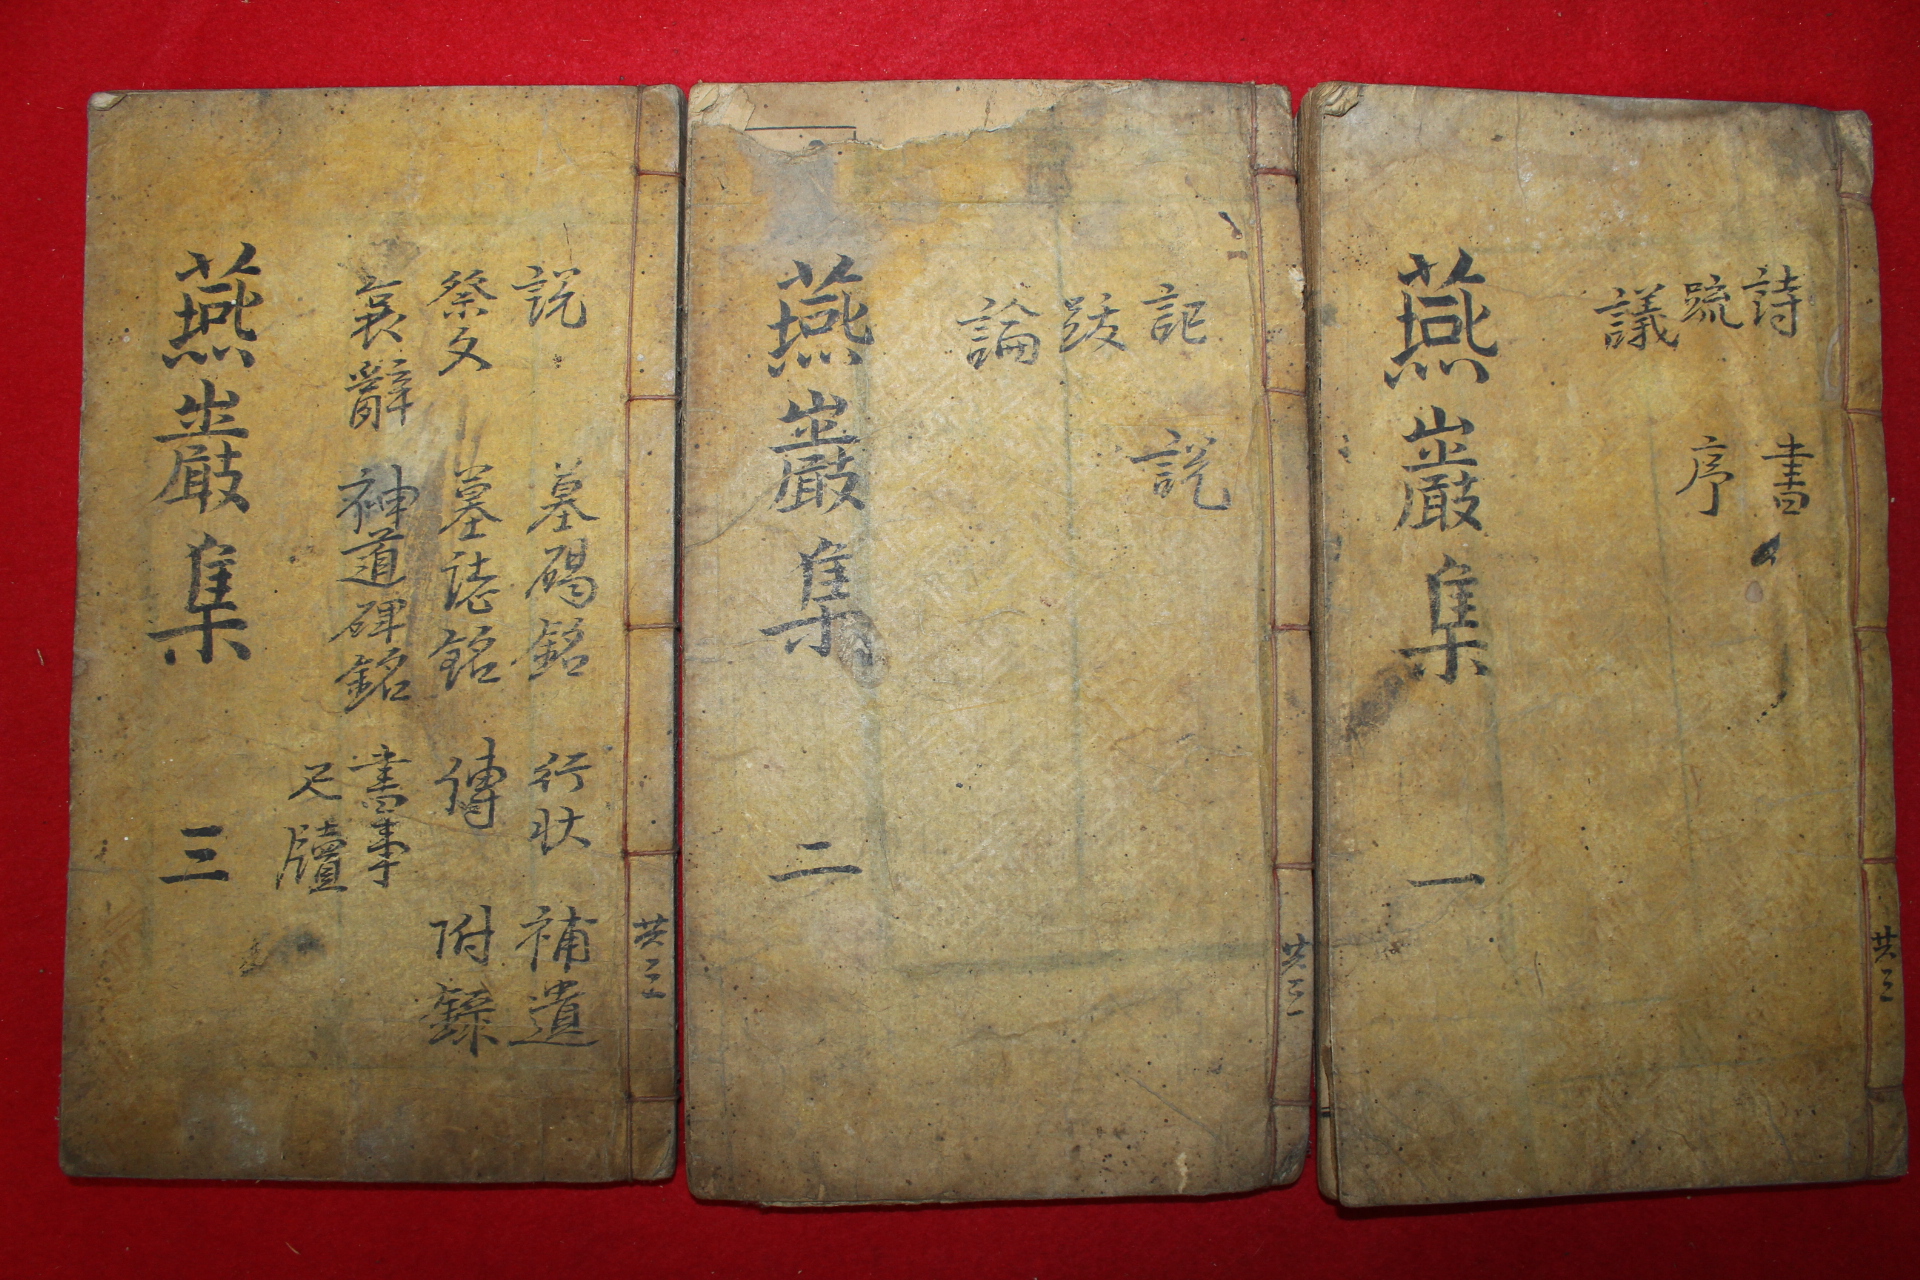 共三
詩 書
疏 序
議
燕巖集 一
共三
記 說
跋
論
燕巖集 二
共三
說 墓碣銘 行狀 補遺
祭文 墓誌銘 傳 附錄
哀辭 神道碑銘 書事
尺牘
燕巖集 三